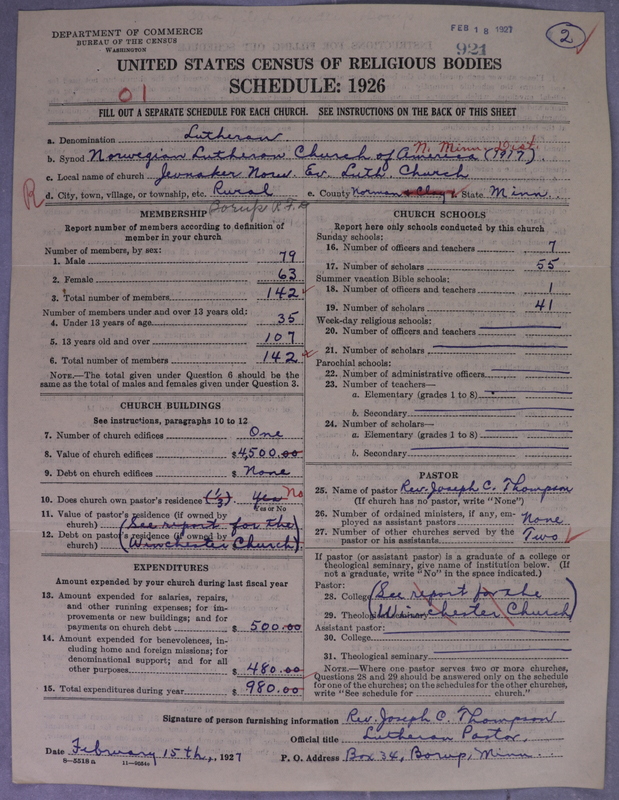 DEPARTMENT OF COMMERCE
BUREAU OF THE CENSUS
WASHINGTON
FEB 18 1927
921
2
UNITED STATES CENSUS OF RELIGIOUS BODIES
SCHEDULE: 1926
01
FILL OUT A SEPARATE SCHEDULE FOR EACH CHURCH. SEE INSTRUCTIONS ON THE BACK OF THIS SHEET
a. Denomination Lutheran
N. Minn. Dist.
b. Synod Norwegian Lutheran Church of America (1917).
c. Local name of church Jevnaker Norw. Ev. Luth. Church
R
d. City, town, village, or township, etc. Rural e. County Norman & Clay State Minn.
Borup R.F.D
MEMBERSHIP
Report number of members according to definition of
member in your church
Number of members, by sex:
1. Male 79
2. Female 63
3. Total number of members 142
Number of members under and over 13 years old:
4. Under 13 years of age 35
5. 13 years old and over 107
6. Total number of members 142
NOTE.—The total given under Question 6 should be the
same as the total of males and females given under Question 3.
CHURCH BUILDINGS
See instructions, paragraphs 10 to 12
7. Number of church edifices One
8. Value of church edifices $4,500.00
9. Debt on church edifices $ None
10. Does church own pastor's residence (1/3) Yes No
Yes or No
11. Value of pastor's residence (if owned by
church) (See report for the
12. Debt on pastor's residence (if owned by
church) Winchester Church)
EXPENDITURES
Amount expended by your church during last fiscal year
13. Amount expended for salaries, repairs,
and other running expenses; for im-
provements or new buildings; and for
payments on church debt $ 500.00
14. Amount expended for benevolences, in-
cluding home and foreign missions; for
denominational support; and for all
other purposes $ 480.00
15. Total expenditures during year $ 980.00
CHURCH SCHOOLS
Report here only schools conducted by this church
Sunday schools:
16. Number of officers and teachers 7
17. Number of scholars 55
Summer vacation Bible schools:
18. Number of officers and teachers 1
19. Number of scholars 41
Week-day religious schools:
20. Number of officers and teachers
21. Number of scholars
Parochial schools:
22. Number of administrative officers
23. Number of teachers—
a. Elementary (grades 1 to 8)
b. Secondary
24. Number of scholars—
a. Elementary (grades 1 to 8)
b. Secondary
PASTOR
25. Name of pastor Rev. Joseph C. Thompson
(If church has no pastor, write "None")
26. Number of ordained ministers, if any, em-
ployed as assistant pastors None
27. Number of other churches served by the
pastor or his assistants Two
If pastor (or assistant pastor) is a graduate of a college or
theological seminary, give name of institution below. (If
not a graduate, write "No" in the space indicated.)
Pastor:
28. College (See report for the
29. Theological seminary Winchester Church)
Assistant pastor:
30. College
31. Theological seminary
NOTE.—Where one pastor serves two or more churches,
Questions 28 and 29 should be answered only on the schedule
for one of the churches; on the schedules for the other churches,
write "See schedule for church."
Signature of person furnishing information Rev. Joseph C. Thompson
Official title Lutheran Pastor.
Date February 15th, 1927 P. O. Address Box 34, Borup, Minn.
8—5518 a